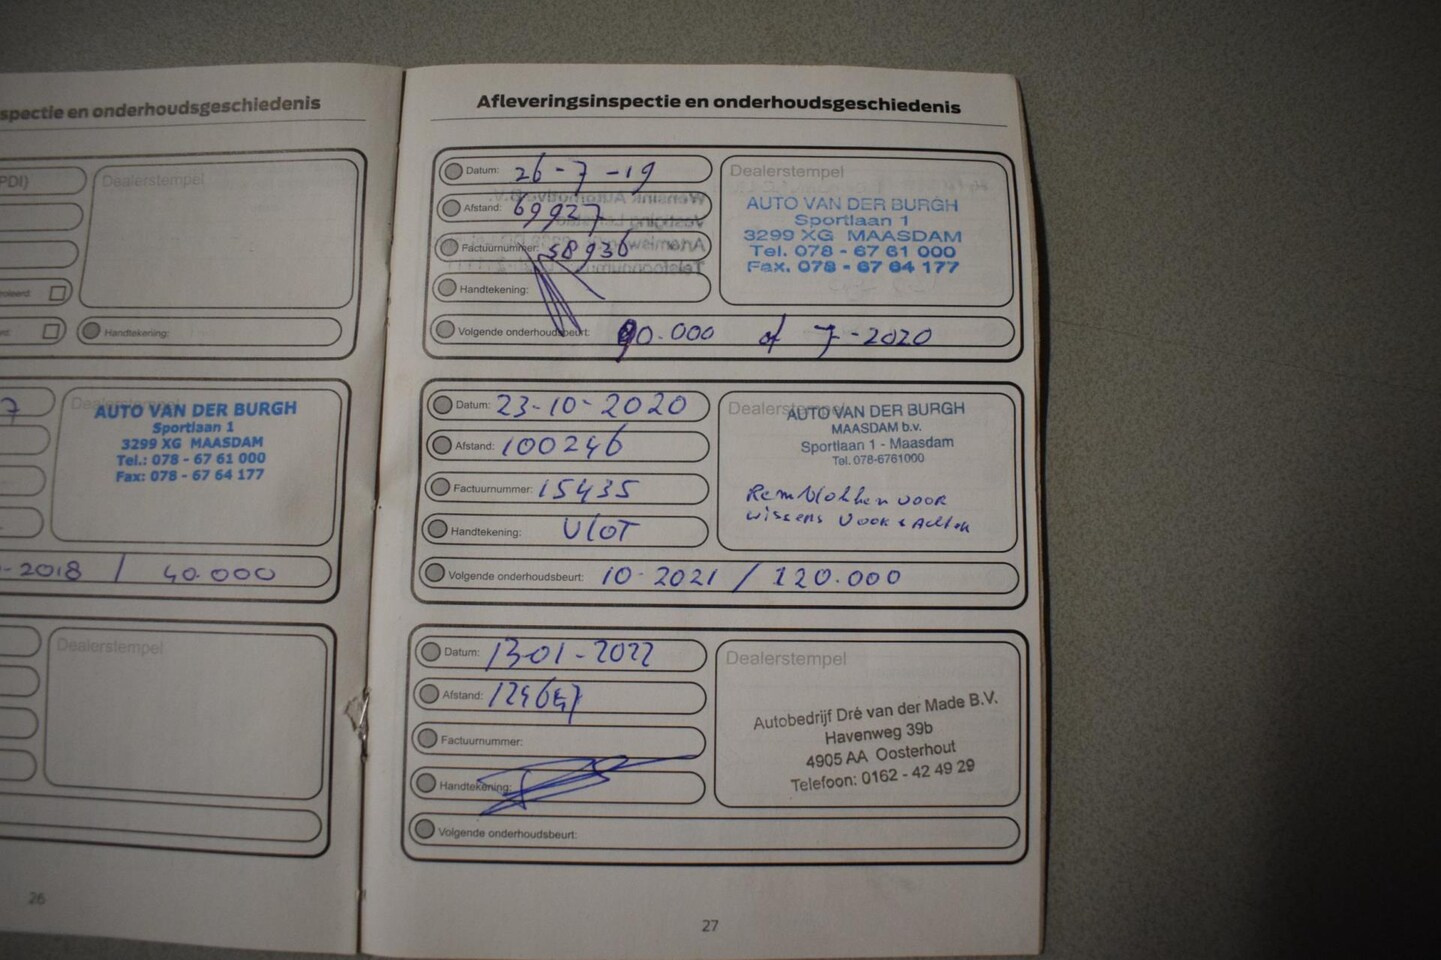 spectie en onderhoudsgeschiedenis
PDI)
Dealerstempel
Handtekening:
7
Dealerstempel
AUTO VAN DER BURGH
Sportlaan 1
3299 XG MAASDAM
Tel.: 078 - 67 61 000
Fax: 078 - 67 64 177
-2018 / 40.000
Dealerstempel
26
Afleveringsinspectie en onderhoudsgeschiedenis
Datum: 26-7-19
Afstand: 69927
Factuurnummer: 58936
Handtekening:
Volgende onderhoudsbeurt: 90.000 of 7-2020
Dealerstempel
AUTO VAN DER BURGH
Sportlaan 1
3299 XG MAASDAM
Tel. 078 - 67 61 000
Fax. 078 - 67 64 177
Datum: 23-10-2020
Afstand: 100246
Factuurnummer: 15435
Handtekening: Vlot
Volgende onderhoudsbeurt: 10-2021 / 120.000
Dealerstempel
AUTO VAN DER BURGH
MAASDAM b.v.
Sportlaan 1 - Maasdam
Tel. 078-6761000
Remblokken voor
wissers voor & achter
Datum: 13-01-2022
Afstand:
Factuurnummer:
Handtekening:
Volgende onderhoudsbeurt:
Dealerstempel
Autobedrijf Dré van der Made B.V.
Havenweg 39b
4905 AA Oosterhout
Telefoon: 0162 - 42 49 29
27